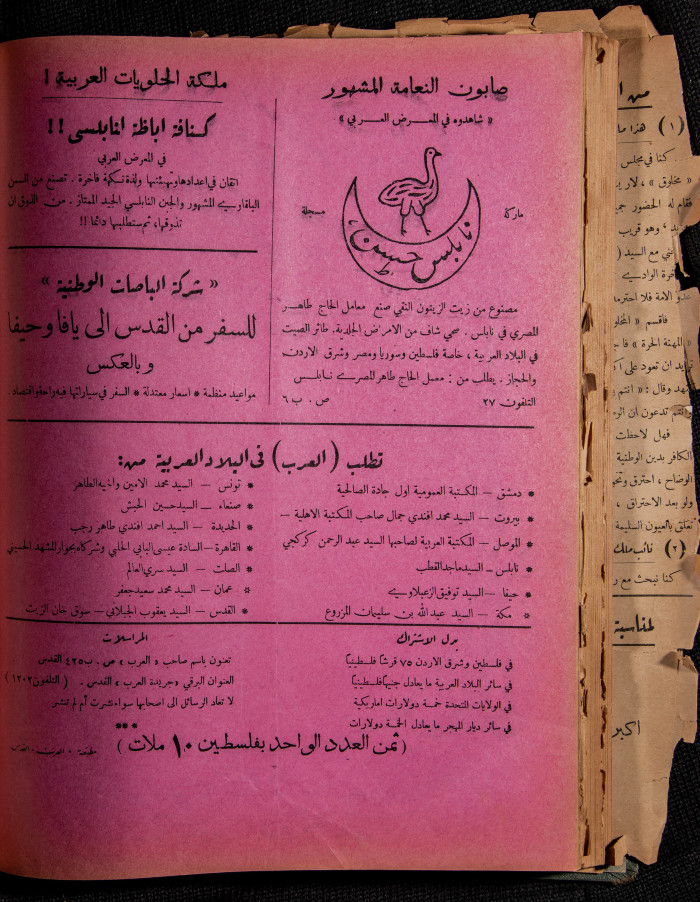 صابون النعامة المشهور
« شاهدوه في المعرض العربي »
ماركة
مسجلة
نابلس حسن ط
مصنوع من زيت الزيتون النقي صنع معامل الحاج طاهر
المصري في نابلس . صحي شاف من الامرض الجلدية . طائر الصيت
في البلاد العربية ، خاصة فلسطين وسوريا ومصر وشرق الاردن
والحجاز . يطلب من : معمل الحاج طاهر المصري نابلس
التلفون ٢٧ ص . ب ٦
ملكة الحلويات العربية !
كنافة اباظة النابلسي !!
في المعرض العربي
اتقان في اعدادها وتهيئتها ولذة نكهة فاخرة . تصنع من السمن
البلقاوي المشهور والجبن النابلسي الجيد الممتاز . من اللوق ان
تذوقها ، ثم ستطلبها دائما !!
« شركة الباصات الوطنية »
للسفر من القدس الى يافا وحيفا
وبالعكس
مواعيد منظمة * اسعار معتدلة * السفر في سياراتها فيه راحة واقتصاد
تطلب (العرب) في البلاد العربية من :
* دمشق — المكتبة العمومية اول جادة الصالحية
* بيروت — السيد محمد افندي جمال صاحب المكتبة الاهلية —
* الموصل — المكتبة العربية لصاحبها السيد عبد الرحمن كركجي
* نابلس — السيد ماجد القطب
* حيفا — السيد توفيق الزعبلاوي
* مكة — السيد عبد الله بن سليمان المزروع
* تونس — السيد محمد الامين واخيه الطاهر
* صنعاء — السيد حسين الحبشي
* الحديدة — السيد احمد افندي طاهر رجب
* القاهرة — السادة عيسى البابي الحلبي وشركاه بجوار المشهد الحسيني
* الصلت — السيد سري العالم
* عمان — السيد محمد سعيد جعفر
* القدس — السيد يعقوب الجيلاني — سوق خان الزيت
بدل الاشتراك
في فلسطين وشرق الاردن ٧٥ قرشاً فلسطينياً
في سائر البلاد العربية ما يعادل جنيهاً فلسطينياً
في الولايات المتحدة خمسة دولارات اماريكية
في سائر ديار المهجر ما يعادل الخمسة دولارات
المراسلات
تعنون باسم صاحب « العرب » ص . ب ٤٢٥ القدس
العنوان البرقي « جريدة العرب » القدس . ( التلفون ١٢٠٢ )
لا تعاد الرسائل الى اصحابها سواء نشرت أم لم تنشر
( ثمن العدد الواحد بفلسطين ١٠ ملات )
مطبعة « العرب » القدس
(١) هذا ما
كنا في مجلس
« مخلوق » ، لا
فقام له الحضور
، وهو قريب
مع السيد (
الامة فلا
فاقسم « المخلو
المهنة الحرة »
ان تعود على
وقال : « انتم
تدعون ان
فهل لاحظت
الكافر بدين الوطنية
الوضاح ، احترق
ولو بعد الاحتراق ،
بالعيون السليمة
(٢) نائب ملك
كنا نبحث مع
لمناسبة